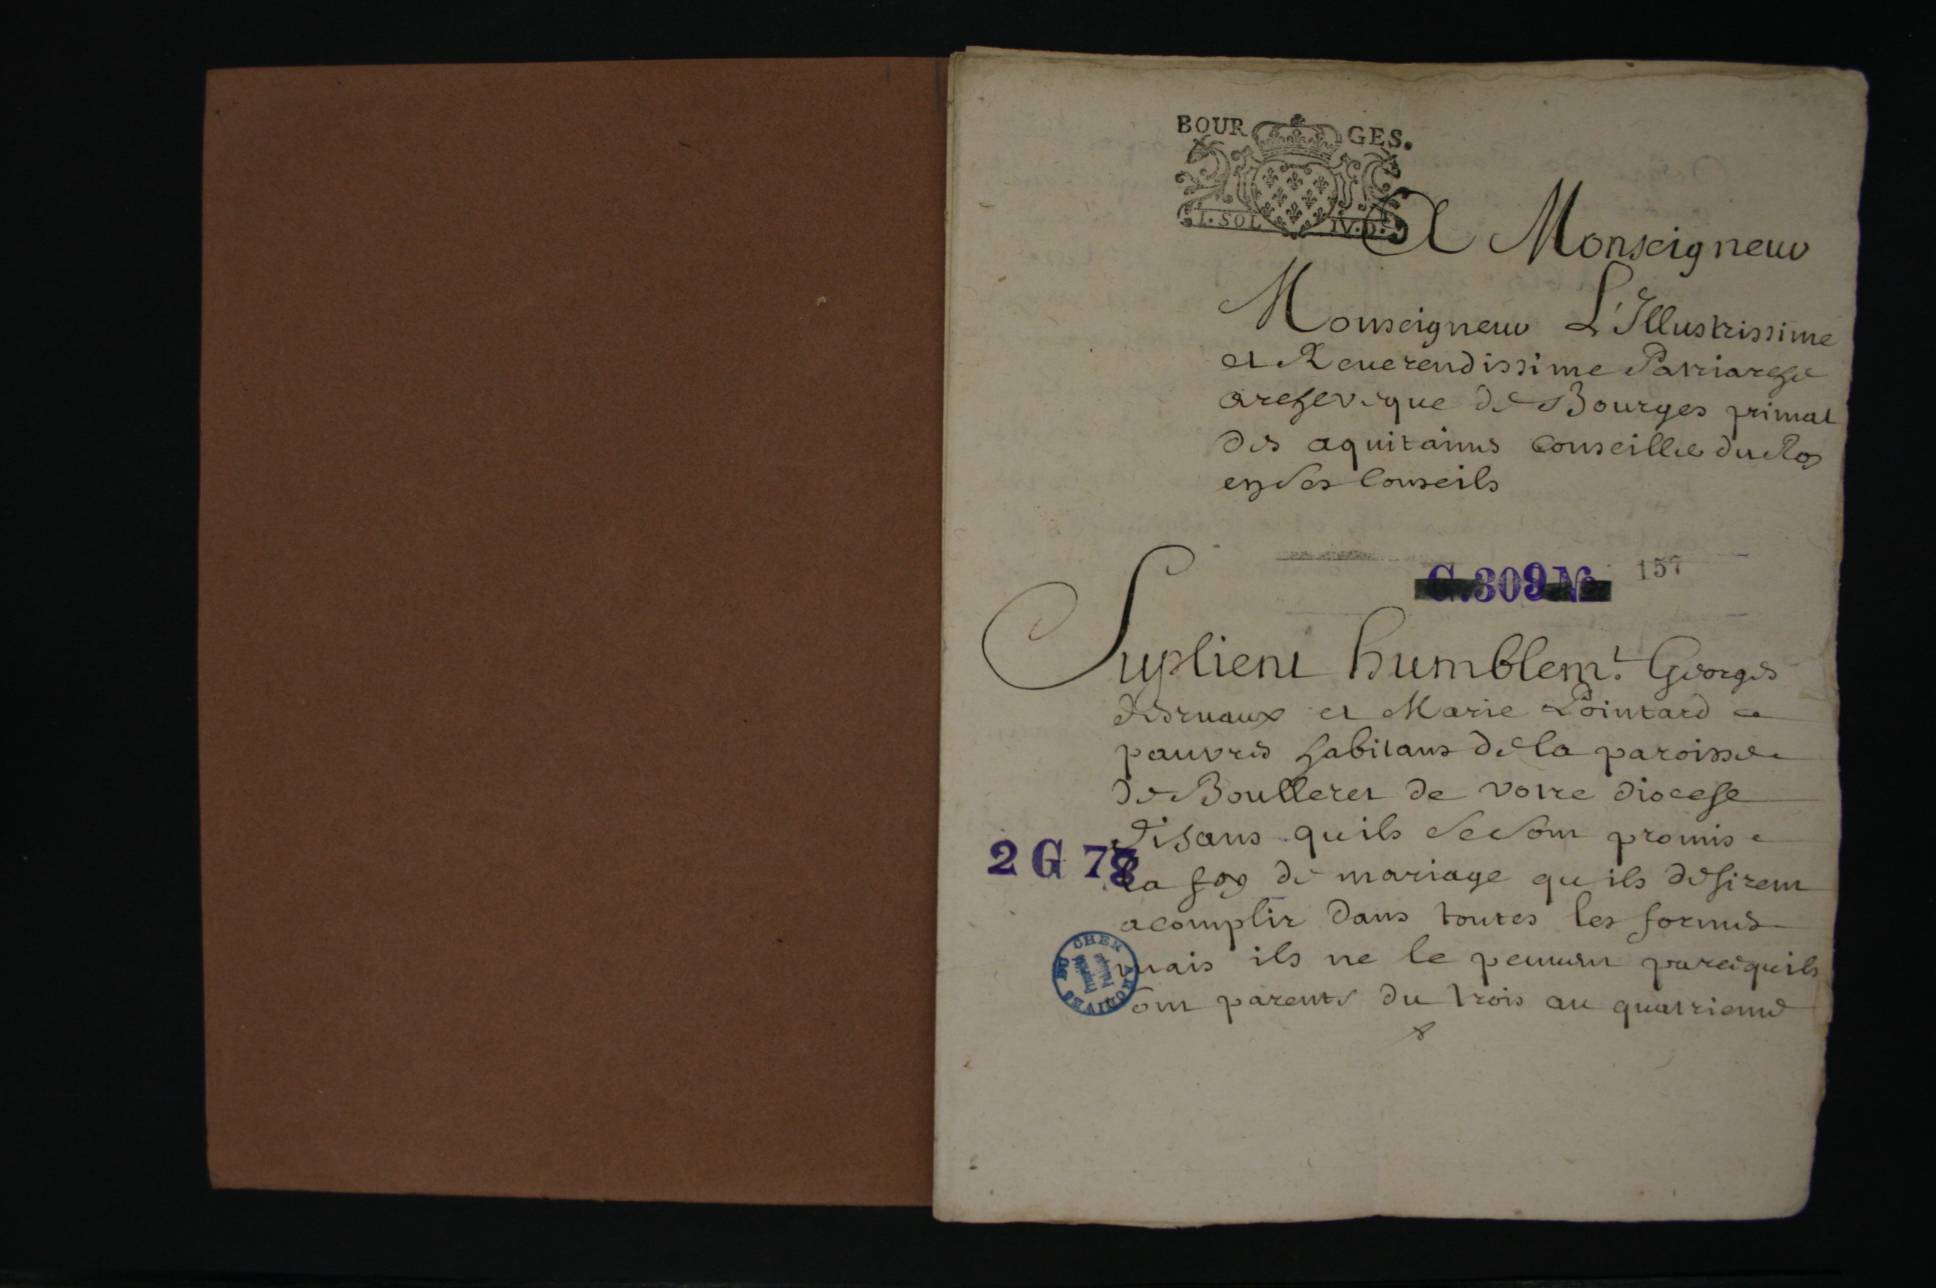 BOURGES.
I. SOL IV. D.
A Monseigneur
Monseigneur L'Illustrissime
et Reuerendissime Patriarche
archeveque de Bourges primat
des aquitaines conseiller du Roy
en ses Conseils
G.309 No 157
Suplient humblemt. Georges
et Marie Pointard
pauvres habitans de la paroisse
de Boulleret de votre diocese
disans quils se sont promis
2 G 78
la foy de mariage qu ils desirent
acomplir dans toutes les formes
mais ils ne le peuuent parcequils
sont parents du trois au quatrieme
ARCHIVES DU CHER